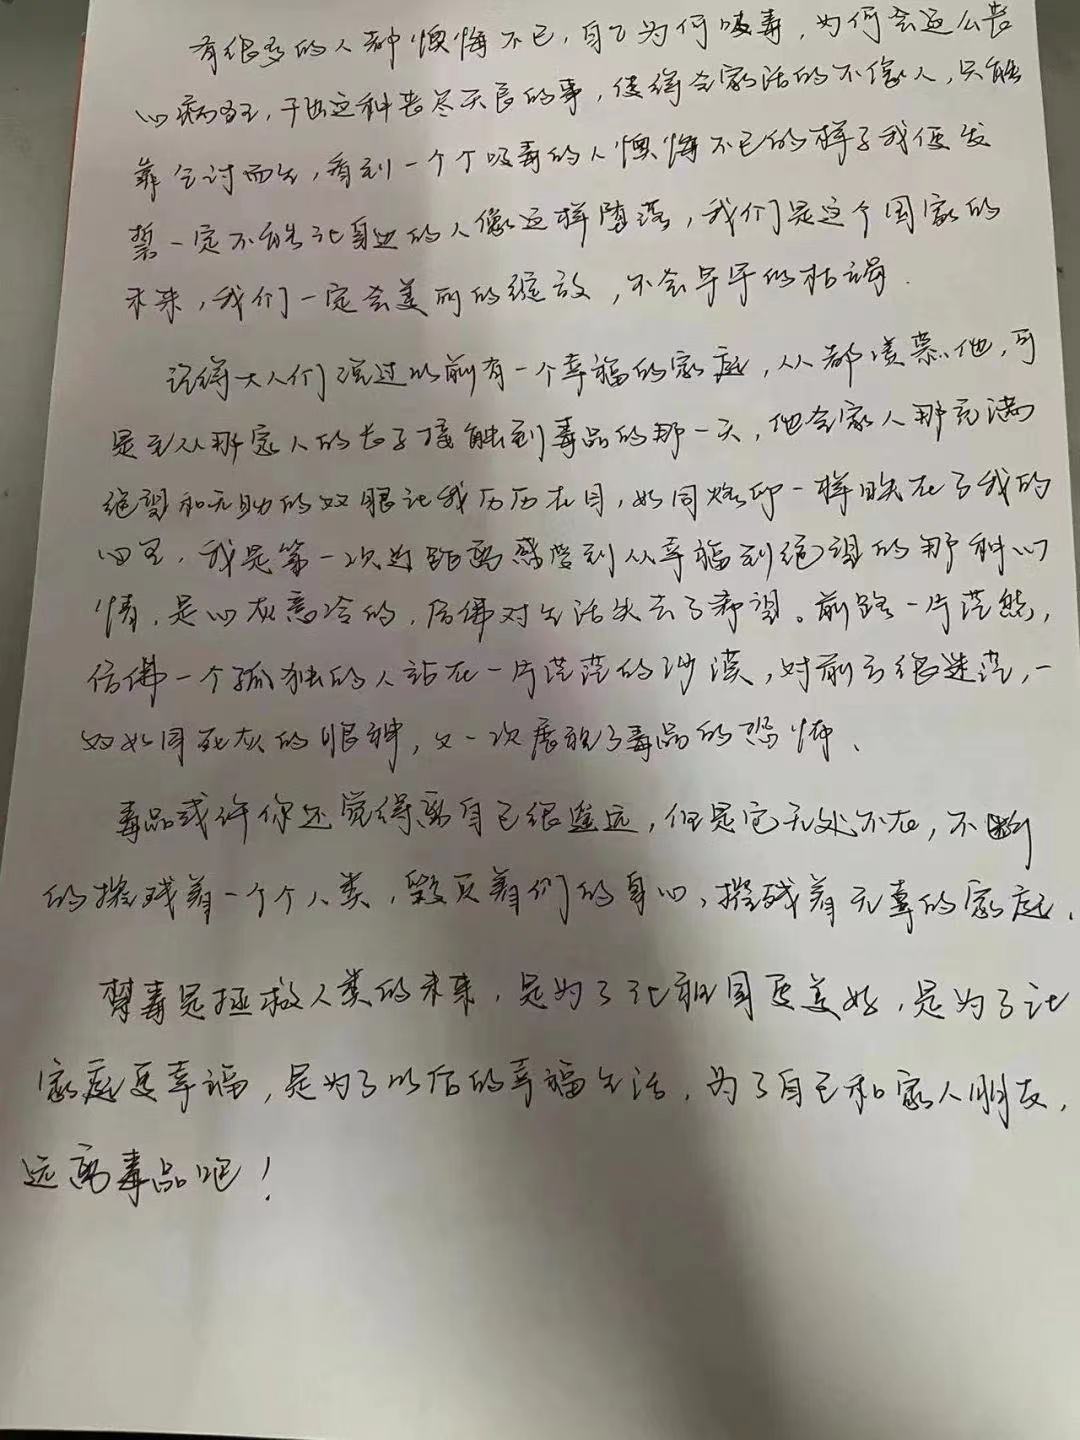 有很多的人都懊悔不已，自己为何吸毒，为何会这么丧
心病狂，干出这种丧尽天良的事，使得全家活的不像人，只能
靠乞讨而生，看到一个个吸毒的人懊悔不已的样子我便发
誓一定不能让身边的人像这样堕落，我们是这个国家的
未来，我们一定会美丽的绽放，不会早早的枯竭．
记得大人们说过以前有一个幸福的家庭，人人都羡慕他，可
是至从那家人的长子接触到毒品的那一天，他全家人那充满
绝望和无助的双眼让我历历在目，如同烙印一样映在了我的
心里，我是第一次近距离感觉到从幸福到绝望的那种心
情，是心灰意冷的，仿佛对生活失去了希望。前路一片茫然，
仿佛一个孤独的人站在一片茫茫的沙漠，对前方很迷茫，一
双如同死灰的眼神，又一次展现了毒品的恐怖、
毒品或许你还觉得离自己很遥远，但是它无处不在，不断
的摧残着一个个人类，毁灭着们的身心，摧残着无辜的家庭．
禁毒是拯救人类的未来，是为了让祖国更美好，是为了让
家庭更幸福，是为了以后的幸福生活，为了自己和家人朋友，
远离毒品吧！